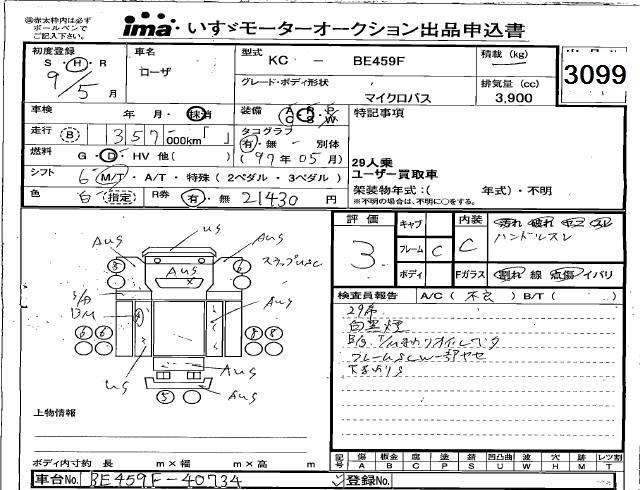 ㊟赤太枠内は必ず
ボールペンで
ご記入下さい。
ima・いすゞモーターオークション出品申込書
初度登録
S・H・R
9/5月
車名
ローザ
型式
KC － BE459F
積載(kg)
グレード・ボディ形状
マイクロバス
排気量(cc)
3,900
3099
車検
年 月・抹消
装備
A C P
R S B W
特記事項
走行
B 357 000km「 」
タコグラフ
有・無 － 別体
(97年05月)
燃料
G・D・HV 他( )
29人乗
ユーザー買取車
シフト
6 M/T・A/T・特殊(2ペダル・3ペダル)
架装物年式:( 年式)・不明
※不明の場合は、不明に○をする。
色
白 指定
R券
有・無 21430 円
評価
3
キャブ
フレーム C
ボディ
内装
C
汚れ 破れ ヤニ スレ
ハンドルスレ
Fガラス
割れ 線 点傷 イバリ
検査員報告 A/C(不良) B/T( )
29席
白黒煙
フレームSCW一部ヤセ
下まわりS
AUS
US
AUS
8
6
AUS
ステップUSC
S/A
AUS
6 6
8 8
US
AUS
AUS
5
上物情報
ボディ内寸約 長 m×幅 m×高 m
記号
傷 板金 腐 塗 錆 凹凸曲 波 穴 跡 レツ割
A B C P S U W H M T
車台No. BE459F-40734
登録No.